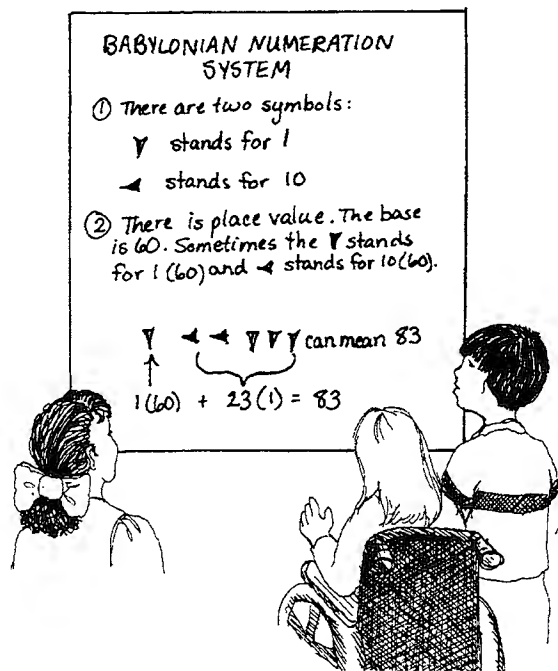 BABYLONIAN NUMERATION
SYSTEM
① There are two symbols:
𒁹 stands for 1
𒌋 stands for 10
② There is place value. The base
is 60. Sometimes the 𒁹 stands
for 1 (60) and 𒌋 stands for 10 (60).
𒁹 𒌋 𒌋 𒁹 𒁹 𒁹 can mean 83
1(60) + 23(1) = 83